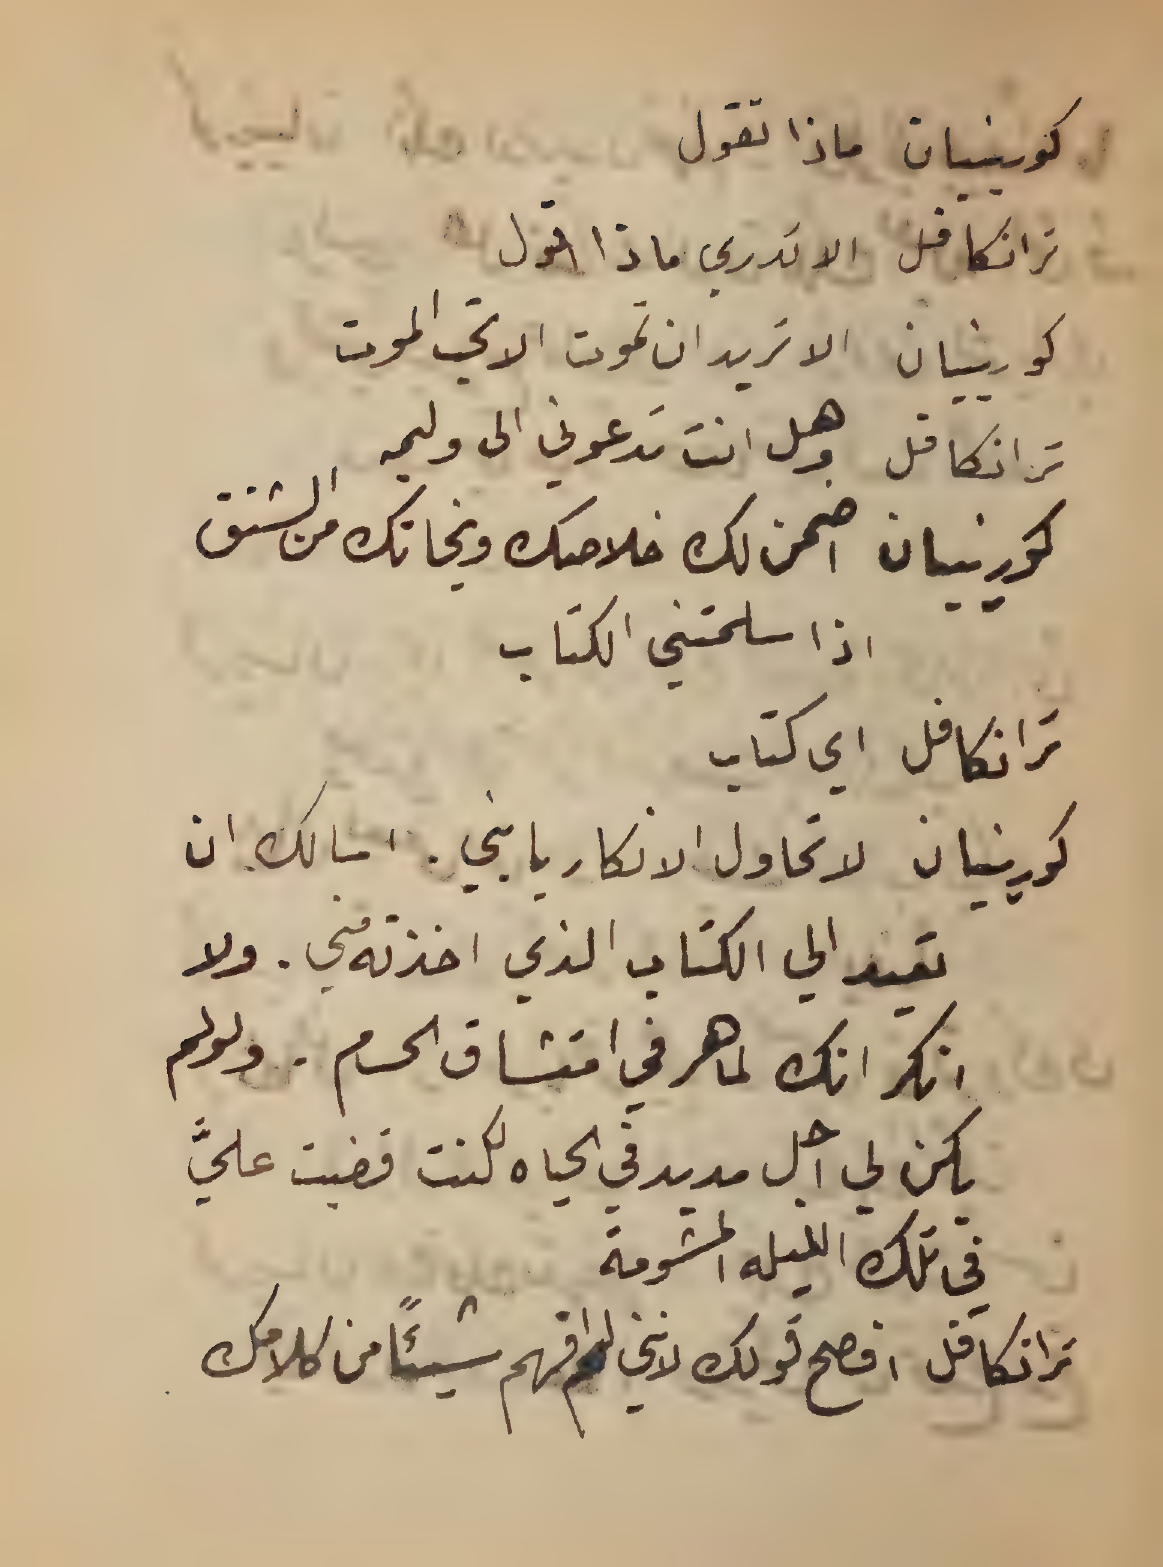 كورينيان ماذا تقول
ترانكافل الا تدري ماذا اقول
كورينيان الا تريد ان تموت الا تحب الموت
ترانكافل وهل انت تدعوني الى وليمه
كورينيان اضمن لك خلاصك ونجاتك من الشنق
اذا سلمتني الكتاب
ترانكافل اي كتاب
كورينيان لا تحاول الانكار يا بني . اسالك ان
تعيد الي الكتاب الذي اخذته مني . ولا
انكر انك لماهر في امتشاق الحسام . ولو لم
يكن لي اجل مديد في الحياه لكنت قضيت عليَّ
في تلك الليله المشومة
ترانكافل افصح قولك لانني لم افهم شيئًا من كلامك